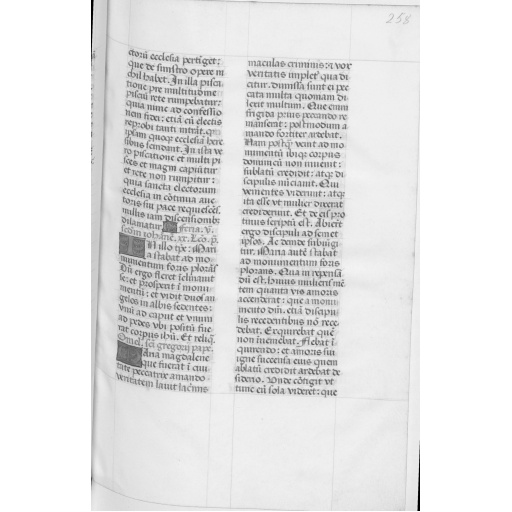 258
ctorũ ecclesia pertĩget:
que de sinistro opere ni
chil habet. In illa pisca
tione pre multitudine
pisciũ rete rumpebatur:
quia nunc ad confessio
nem fidei: etiã cũ electis
reprobi tanti intrãt. qui
ipsam quoqz ecclesiã here
sibus scindant. In ista ve
ro piscatione et multi pi
sces et magni capiũtur
et rete non rumpitur:
quia sancta electorum
ecclesia in cõtinua auc
toris sui pace requiescẽs.
nullis iam discensionibz
dilaniatur. feria. v.
scďm Iohãnẽ. xx. Lcõ. p.
In illo tp̃e: Mari
a stabat ad mo
numentum foris plorãs
Dũ ergo fleret ĩclinavit
se: et prospexit ĩ monu
mentũ: et vidit duos an
gelos in albis sedentes:
unũ ad caput et unum
ad pedes ubi positũ fue
rat corpus ihũ. Et reliq̃.
Omel. sci gregorij pape.
Maria magdalene
que fuerat ĩ civi
tate peccatrix amando
veritatem lavit lacrimis
maculas criminis: et vox
veritatis impletᵉ qua di
citur. dimissa sunt ei pec
cata multa quoniam di
lexit multum. Que enim
frigida prius peccando re
manserat: postmodum a
mando fortiter ardebat.
Nam postqz venit ad mo
numentũ ibiqz corpus
dominicũ non invenit:
sublatũ credidit: atqz di
scipulis nũciavit. Qui
venientes viderunt: atqz
ita esse ut mulier dixerat
crediderunt. Et de eis pro
tinus scriptũ est. Abierũt
ergo discipuli ad semet
ipsos. Ac deinde subiũgi
tur. Maria autẽ stabat
ad monumentum foris
plorans. Qua in re pensã
dũ est. huius mulieris mẽ
tem quanta vis amoris
accenderat: que a monu
mento dñi. etiã discipu
lis recedentibus nõ rece
debat. Exquirebat quẽ
non invenebat. Flebat ĩ
quirendo: et amoris sui
igne succensa eius quem
ablatũ credidit ardebat de
siderio. Unde cõtigit ut
tunc eũ sola videret: que